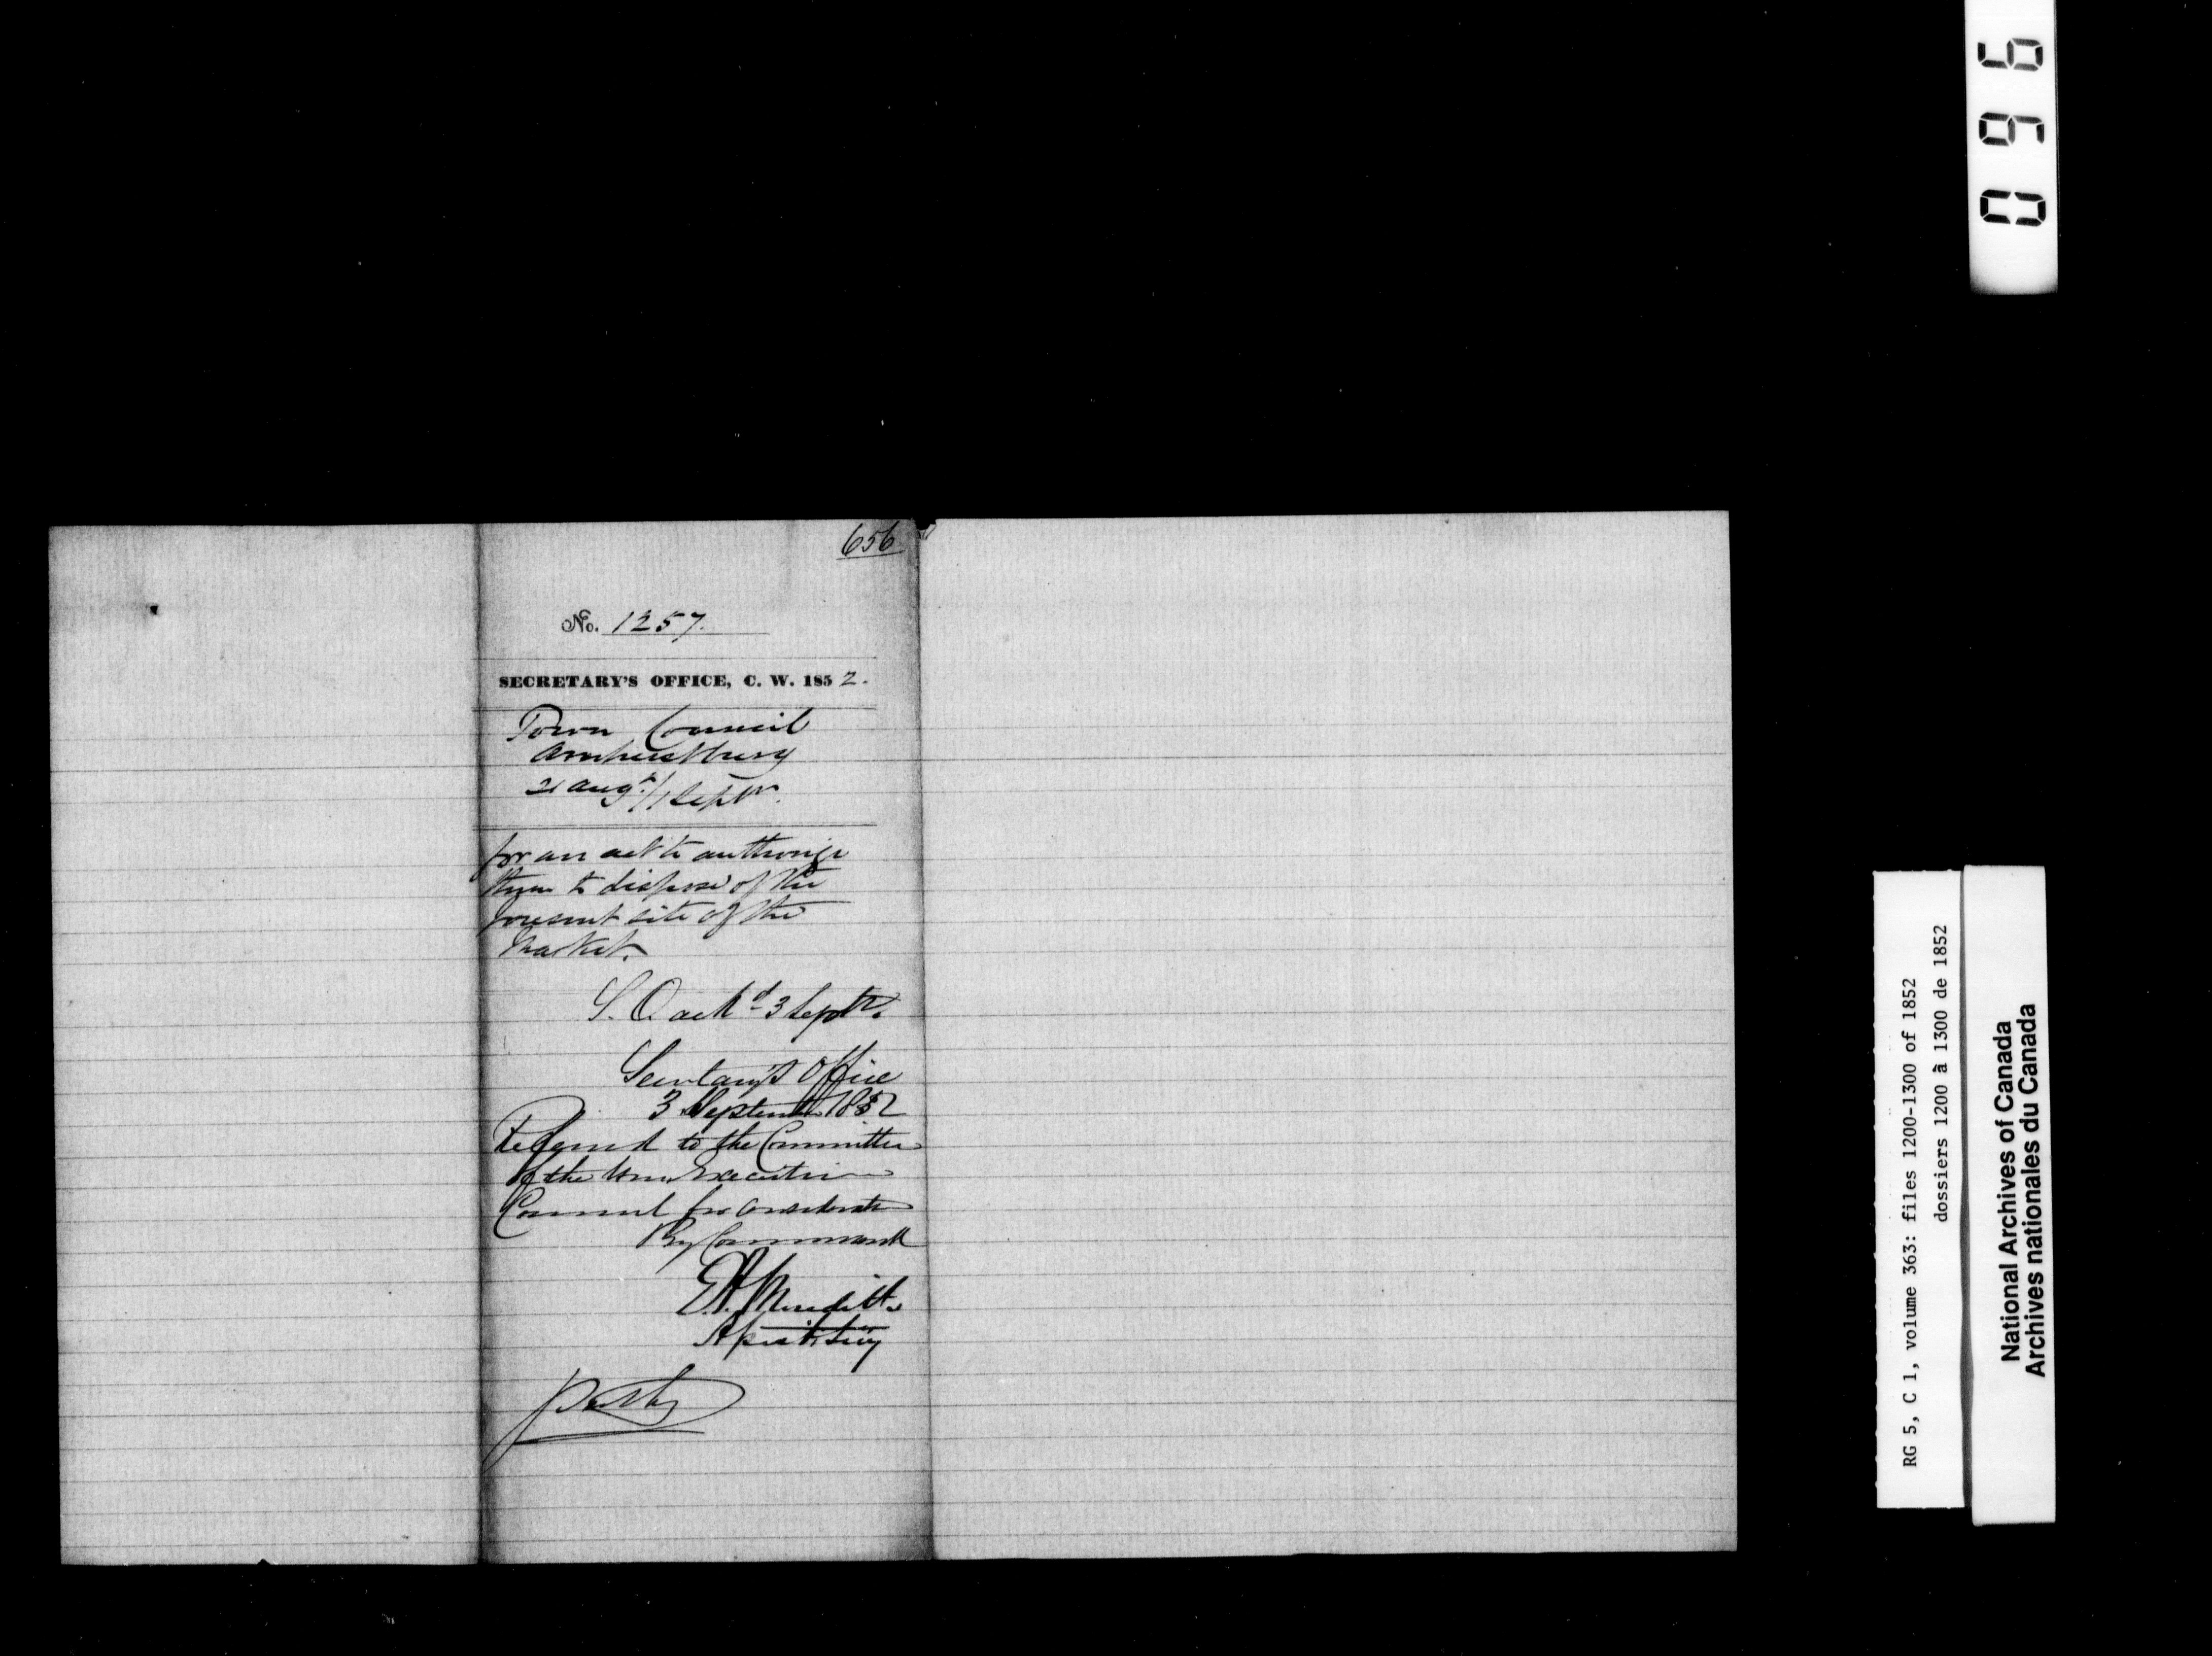 656
No. 1257.
SECRETARY'S OFFICE, C. W. 1852.
Town Council
Amherstburg
21 augt/1 Septr.
for an act to authorize
them to dispose of the
present site of the
Market.
L. C. ackd 3 Septr.
Secretary's Office
3 September 1852
Referred to the Committee
of the Hon. Executive
Council for consideration
By Command
E. A. Meredith
Asssistt Secy
096
RG 5, C 1, volume 363: files 1200-1300 of 1852
dossiers 1200 à 1300 de 1852
National Archives of Canada
Archives nationales du Canada